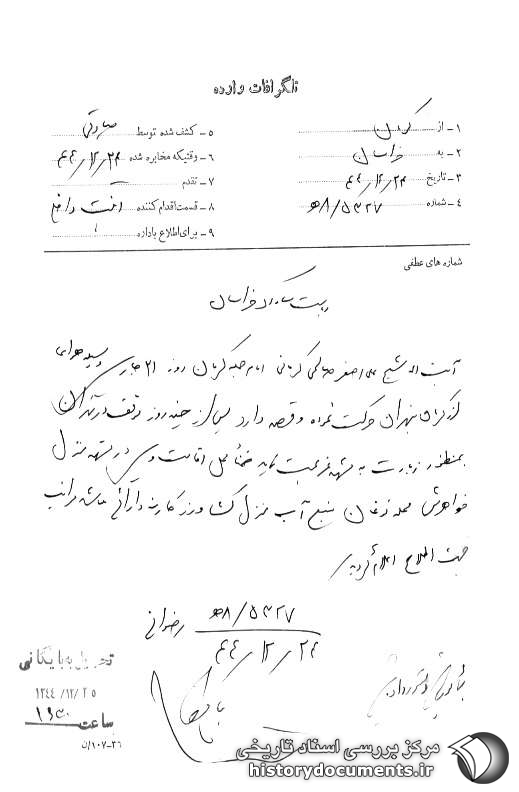 تلگرافات وارده
۱ - از کرمان
۲ - به خراسان
۳ - تاریخ ۴۴/۱۲/۲۴
۴ - شماره ۵۳۲۷/ه۸
۵ - کشف شده توسط
۶ - وقتیکه مخابره شده ۴۴/۱۲/۲۴
۷ - تقدم
۸ - قسمت اقدام کننده امنیت داخلی
۹ - برای اطلاع باداره
شماره های عطفی
ریاست ساواک خراسان
آیت اله شیخ علی اصغر صالحی کرمانی امام جمعه کرمان روز ۲۱ جاری وسیله هوای
از کرمان بتهران حرکت نموده و قصد دارد پس از چند روز توقف در تهران
بمنظور زیارت به مشهد عزیمت نماید ضمنا محل اقامت وی در مشهد منزل
خواهرش محله زغال منبع آب منزل کشاورز کارمند دارائی میباشد مراتب
جهت اطلاع اعلام گردید
۵۳۲۷/ه۸ رضوانی
۴۴/۱۲/۲۴
تحویل به بایگانی
۱۳۴۴/۱۲/۲۵
ساعت
۲۶-۱۰۷/ن
مرکز بررسی اسناد تاریخی
historydocuments.ir